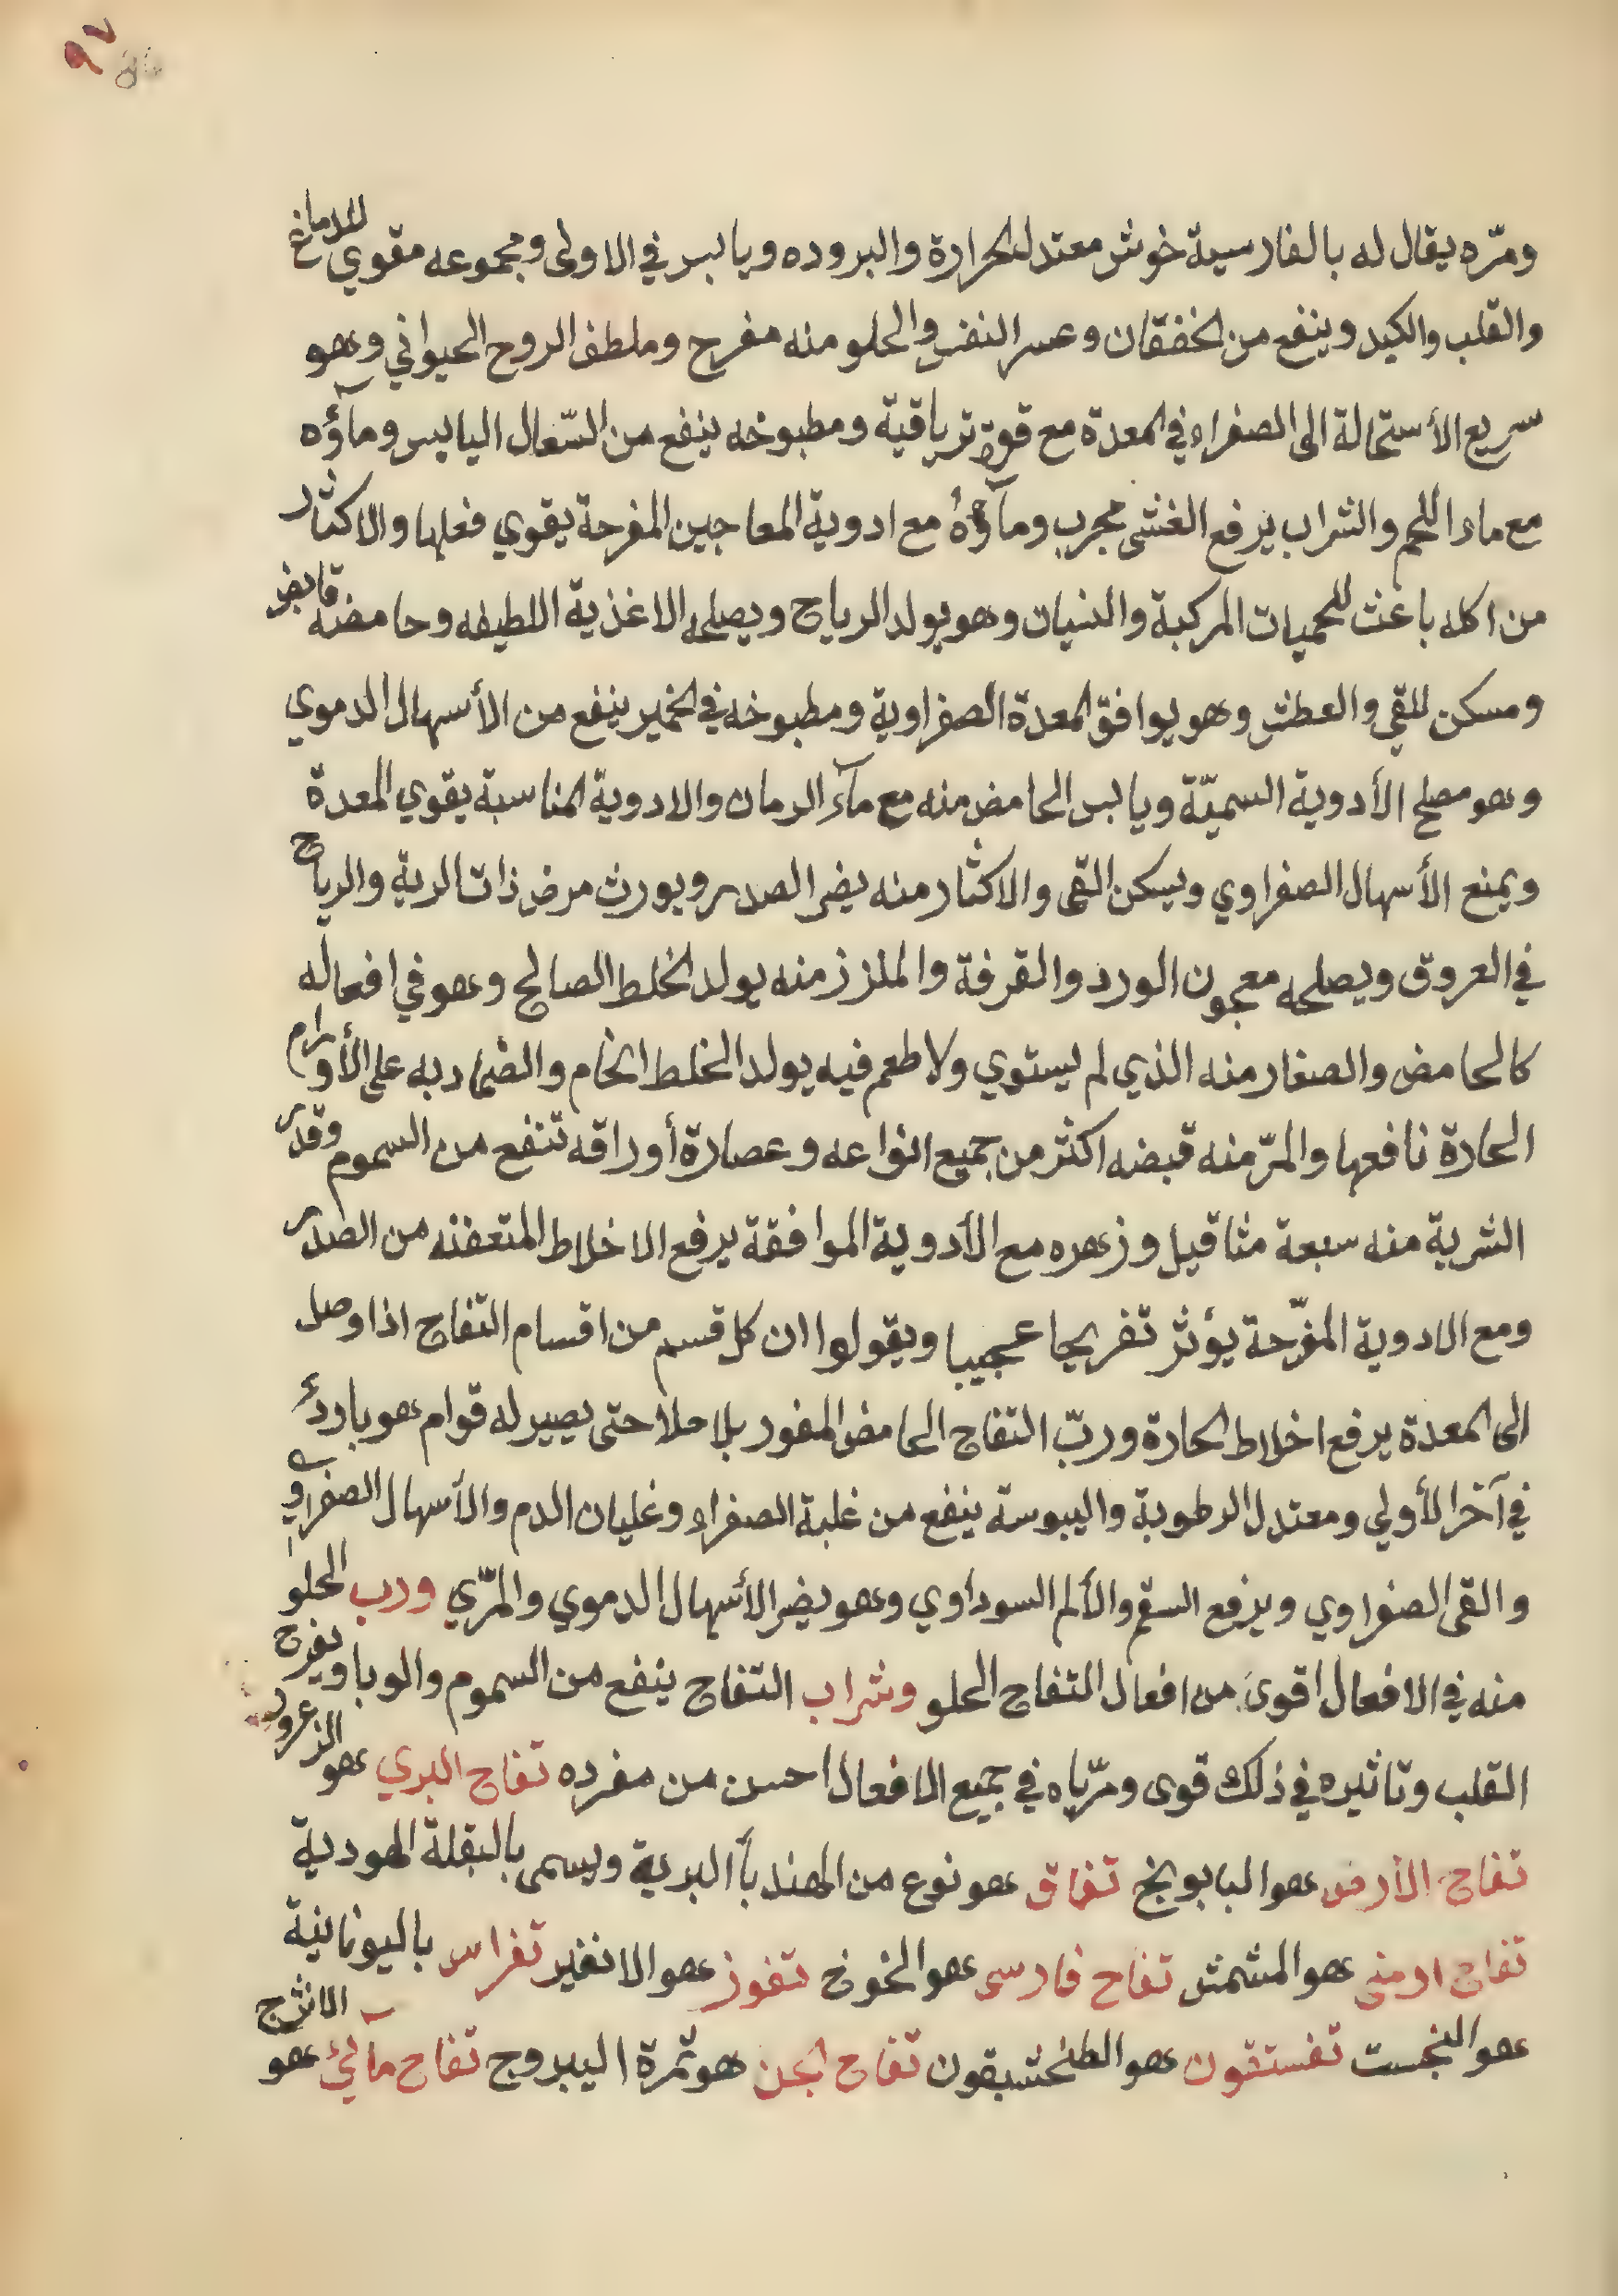 ٩٧
ومرّه يقال له بالفارسية خوش معتدل الحرارة والبروده ويابس في الاولى ومجموعه مقوي للدماغ
والقلب والكبد وينفع من الخفقان وعسر النفس والحلو منه مفرح وملطف الروح الحيواني وهو
سريع الأستحالة الى الصفراء في المعدة مع قوة ترياقية ومطبوخه ينفع من السّعال اليابس ومآؤه
مع ماء اللحم والشراب يرفع الغشى مجرب ومآؤهُ مع ادوية المعاجين المفرحة يقوي فعلها والاكثار
من اكله باعث للحميات المركبة والنسيان وهو يولد الرياح ويصلحه الاغذية اللطيفه وحامضه قابض
ومسكن للقي والعطش وهو يوافق المعدة الصفراوية ومطبوخه في الخمير ينفع من الأسهال الدموي
وهو مصلح الأدوية السميّة ويابس الحامض منه مع مآء الرمان والادوية المناسبة يقوي المعدة
ويمنع الأسهال الصفراوي ويسكن القى والاكثار منه يضر الصدر ويورث مرض ذات الرية والرياح
في العروق ويصلحه معجون الورد والقرفة والملزز منه يولد الخلط الصالح وهو في افعاله
كالحامض والصغار منه الذي لم يستوي ولا طعم فيه يولد الخلط الخام والضماد به على الأورام
الحارة نافعها والمرّ منه قبضه اكثر من جميع انواعه وعصارة أوراقه تنفع من السموم وقدر
الشربة منه سبعة مثاقيل وزهره مع الأدوية الموافقة يرفع الاخلاط المتعفنه من الصدر
ومع الادوية المفرّحة يؤثر تفريحا عجيبا ويقولوا ان كل قسم من اقسام التفاح اذا وصل
الى المعدة يرفع اخلاط الحارة وربّ التفاح الحامض المفور بلا حلا حتى يصير له قوام هو بارد
في آخر الأولي ومعتدل الرطوبة واليبوسة ينفع من غلبة الصفراء وغليان الدم والأسهال الصفراوي
والقى الصفراوي ويرفع السقم والألم السوداوي وهو يضر الأسهال الدموي والمرّي ورب الحلو
منه في الافعال اقوى من افعال التفاح الحلو وشراب التفاح ينفع من السموم والوبا ويفرح
القلب وتاثيره في ذلك قوى ومربّاه في جميع الافعال احسن من مفرده تفاح البري هو الزعرور
تفاح الأرض هو البابونج تفاق هو نوع من الهندبآ البرية ويسمى بالبقلة اليهودية
تفاح ارمني هو المشمش تفاح فارسى هو الخوخ تفوز هو الانفير تفراس باليونانية
هو البنجست تفستتون هو الطخشيقون تفاح الجن هو ثمرة اليبروج تفاح مآئي هو الاترج